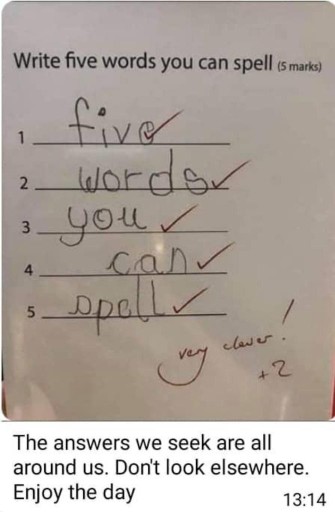 Write five words you can spell (5 marks)
1 five
2 words
3 you
4 can
5 spell
very clever!
+2
The answers we seek are all
around us. Don't look elsewhere.
Enjoy the day
13:14